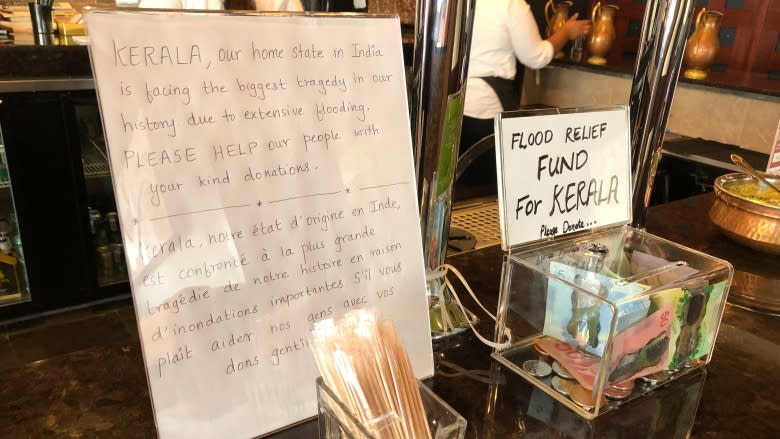 KERALA, our home state in India
is facing the biggest tragedy in our
history due to extensive flooding.
PLEASE HELP our people with
your kind donations.
Kerala, notre état d'origine en Inde,
est confronté à la plus grande
tragédie de notre histoire en raison
d'inondations importantes S'il vous
plaît aider nos gens avec vos
dons gentil
FLOOD RELIEF
FUND
For KERALA
Please Donate...